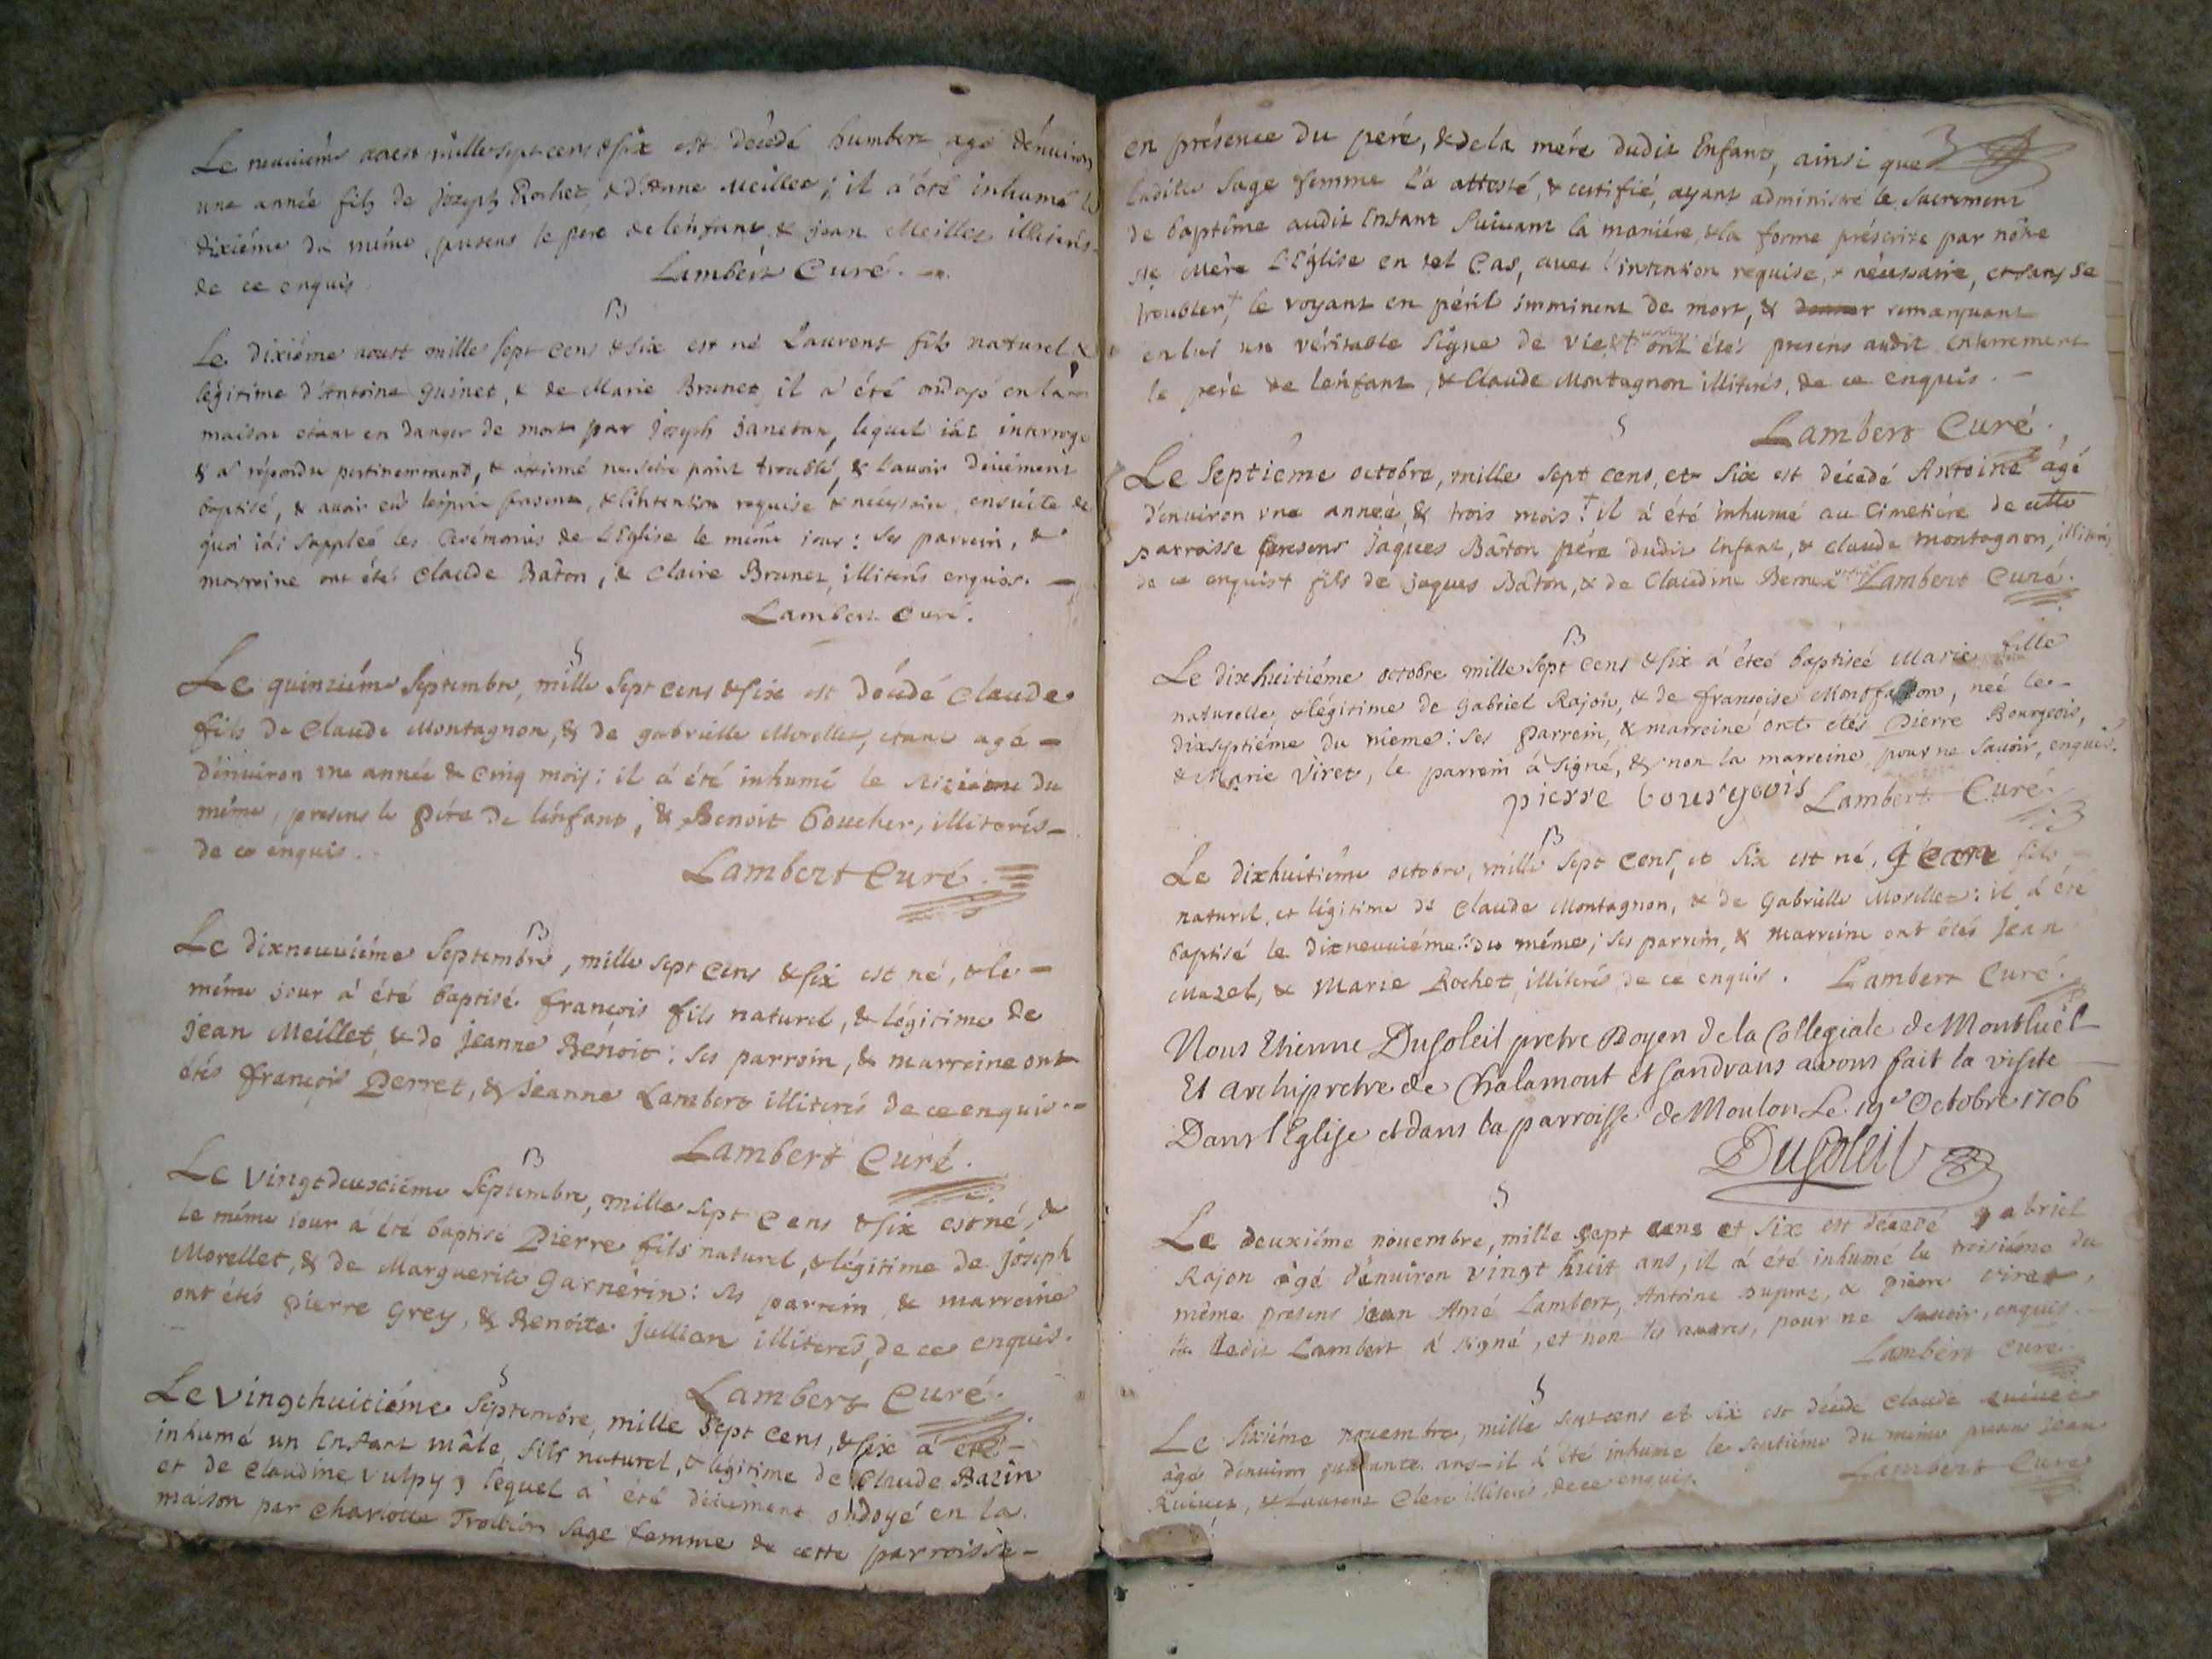 Le neuvième aoust mille sept cens & six est décédé humbert agé d'enuiron
une année fils de joseph Rochet, & d'Anne Meillet; il a été inhumé le
dixiéme du même, presens le pere de l'enfant, & jean Meillet illiterés
de ce enquis. Lambert Curé.
B
Le dixiéme aoust mille sept cens & six est né Laurent fils naturel &
légitime d'Antoine guinet, & de Marie Brunet, il a été ondoyé en la
maison etant en danger de mort par joseph janetan, lequel iái interrogé
& a répondu pertinemment, & affirmé
baptisé, & l'intention requise & nécessaire, ensuite de
quoi iái suppleé les Cérémonies de L'Eglise le même iour: ses parrein, &
marreine ont étés Claude Bâton, & Claire Brunet, illiterés enquis.
Lambert Curé.
S
Le quinziéme Septembre, mille Sept cens & six est décédé Claude
fils de Claude Montagnon, & de gabrielle Morellet, etant agé
d'enuiron une année & cinq mois: il á été inhumé le seiziéme du
même, presens le Pére de l'énfant, & Benoit Boucher, illiterés
de ce enquis.
Lambert Curé.
B
Le dixneuuiéme Septembre, mille sept cens & six est né, & le
même jour á été baptisé françois fils naturel, & légitime de
jean Meillet, & de jeanne Benoit: ses parrein, & marreine ont
étés françois Perret, & jeanne Lambert illiterés de ce enquis.
Lambert Curé.
B
Le vingtdeuxiéme Septembre, mille sept Cens & six est né, &
le même iour á été baptisé Pierre fils naturel, & légitime de joseph
Morellet, & de Marguerite Garnérin: ses parrein, & marreine
ont étés pierre Grey, & Benoite jullian illiterés, de ce enquis.
Lambert Curé.
S
Le vingthuitiéme Septembre, mille Sept cens, & six á été
inhumé un Enfant mâle, fils naturel, & légitime de Claude Bazin
et de Claudine Vulpy, lequel á été düement ondoyé en la
maison par Charlotte Trollion Sage femme de cette parroisse
en présence du pere, & de la mére dudit Enfant, ainsi que
ladite Sage femme l'a attesté, & certifié, ayant administré le Sacrement
de baptême audit Enfant Suivant la maniére, & la forme préscrite par nôtre
Ste Mére L'Eglise en tel Cas, auec l'intention requise, & nécessaire, et sans se
troubler, le voyant en péril imminent de mort, & remarquant
en lui un véritable signe de vie, & ont étés presens audit enterrement
le pere de l'énfant, & Claude Montagnon illiterés, de ce enquis.
Lambert Curé.
S
Le Septiéme octobre, mille sept cens, et Six est décedé Antoine âgé
d'enuiron vne année, & trois mois: il á été inhumé au Cimetiére de cette
parroisse presens jaques Bâton pére dudit Enfant, & Claude montagnon, illiterés
de ce enquis + fils de jaques Bâton, & de Claudine Lambert Curé.
B
Le dixhuitiéme octobre mille Sept cens & six á été baptisée Marie fille
naturelle, & légitime de Gabriel Rajon, & de françoise neé le
dixseptiéme du méme: ses parrein, & marreine ont étés pierre Bourgeois,
& Marie Viret, le parrein á signé, & non la marreine pour ne sauoir, enquis.
pierre bourgeois Lambert Curé.
B
Le dixhuitiéme octobre, mille Sept Cens, et Six est né, jean fils
naturel, et légitime de Claude Montagnon, & de Gabrielle Morellet: il á été
baptisé le dixneuuiéme du méme; ses parrein, & marreine ont étés jean
Mazet, & Marie Rochet, illiterés de ce enquis. Lambert Curé.
Nous Etienne Dusoleil pretre Doyen de la Collegiale de Montluel
Et archipretre de Chalamont et Sandrans avons fait la visite
Dans l'Eglise et dans la parroisse de Moulon Le 19e Octobre 1706
Dusoleil
S
Le deuxiéme nouembre, mille sept cens et six est décedé gabriel
Rajon âgé d'enuiron vingt huit ans, il á été inhumé le troisiéme du
même presens jean Amé Lambert, Antoine Dupraz, & pierre Viret,
ledit Lambert á signé, et non les autres, pour ne sauoir, enquis.
Lambert Curé.
S
Le Sixiéme nouembre, mille sept cens et six est décédé Claude
âgé d'enuiron quarante ans il á été inhumé le septiéme du même jean
& Laurent Clerc illiterés de ce enquis. Lambert Curé